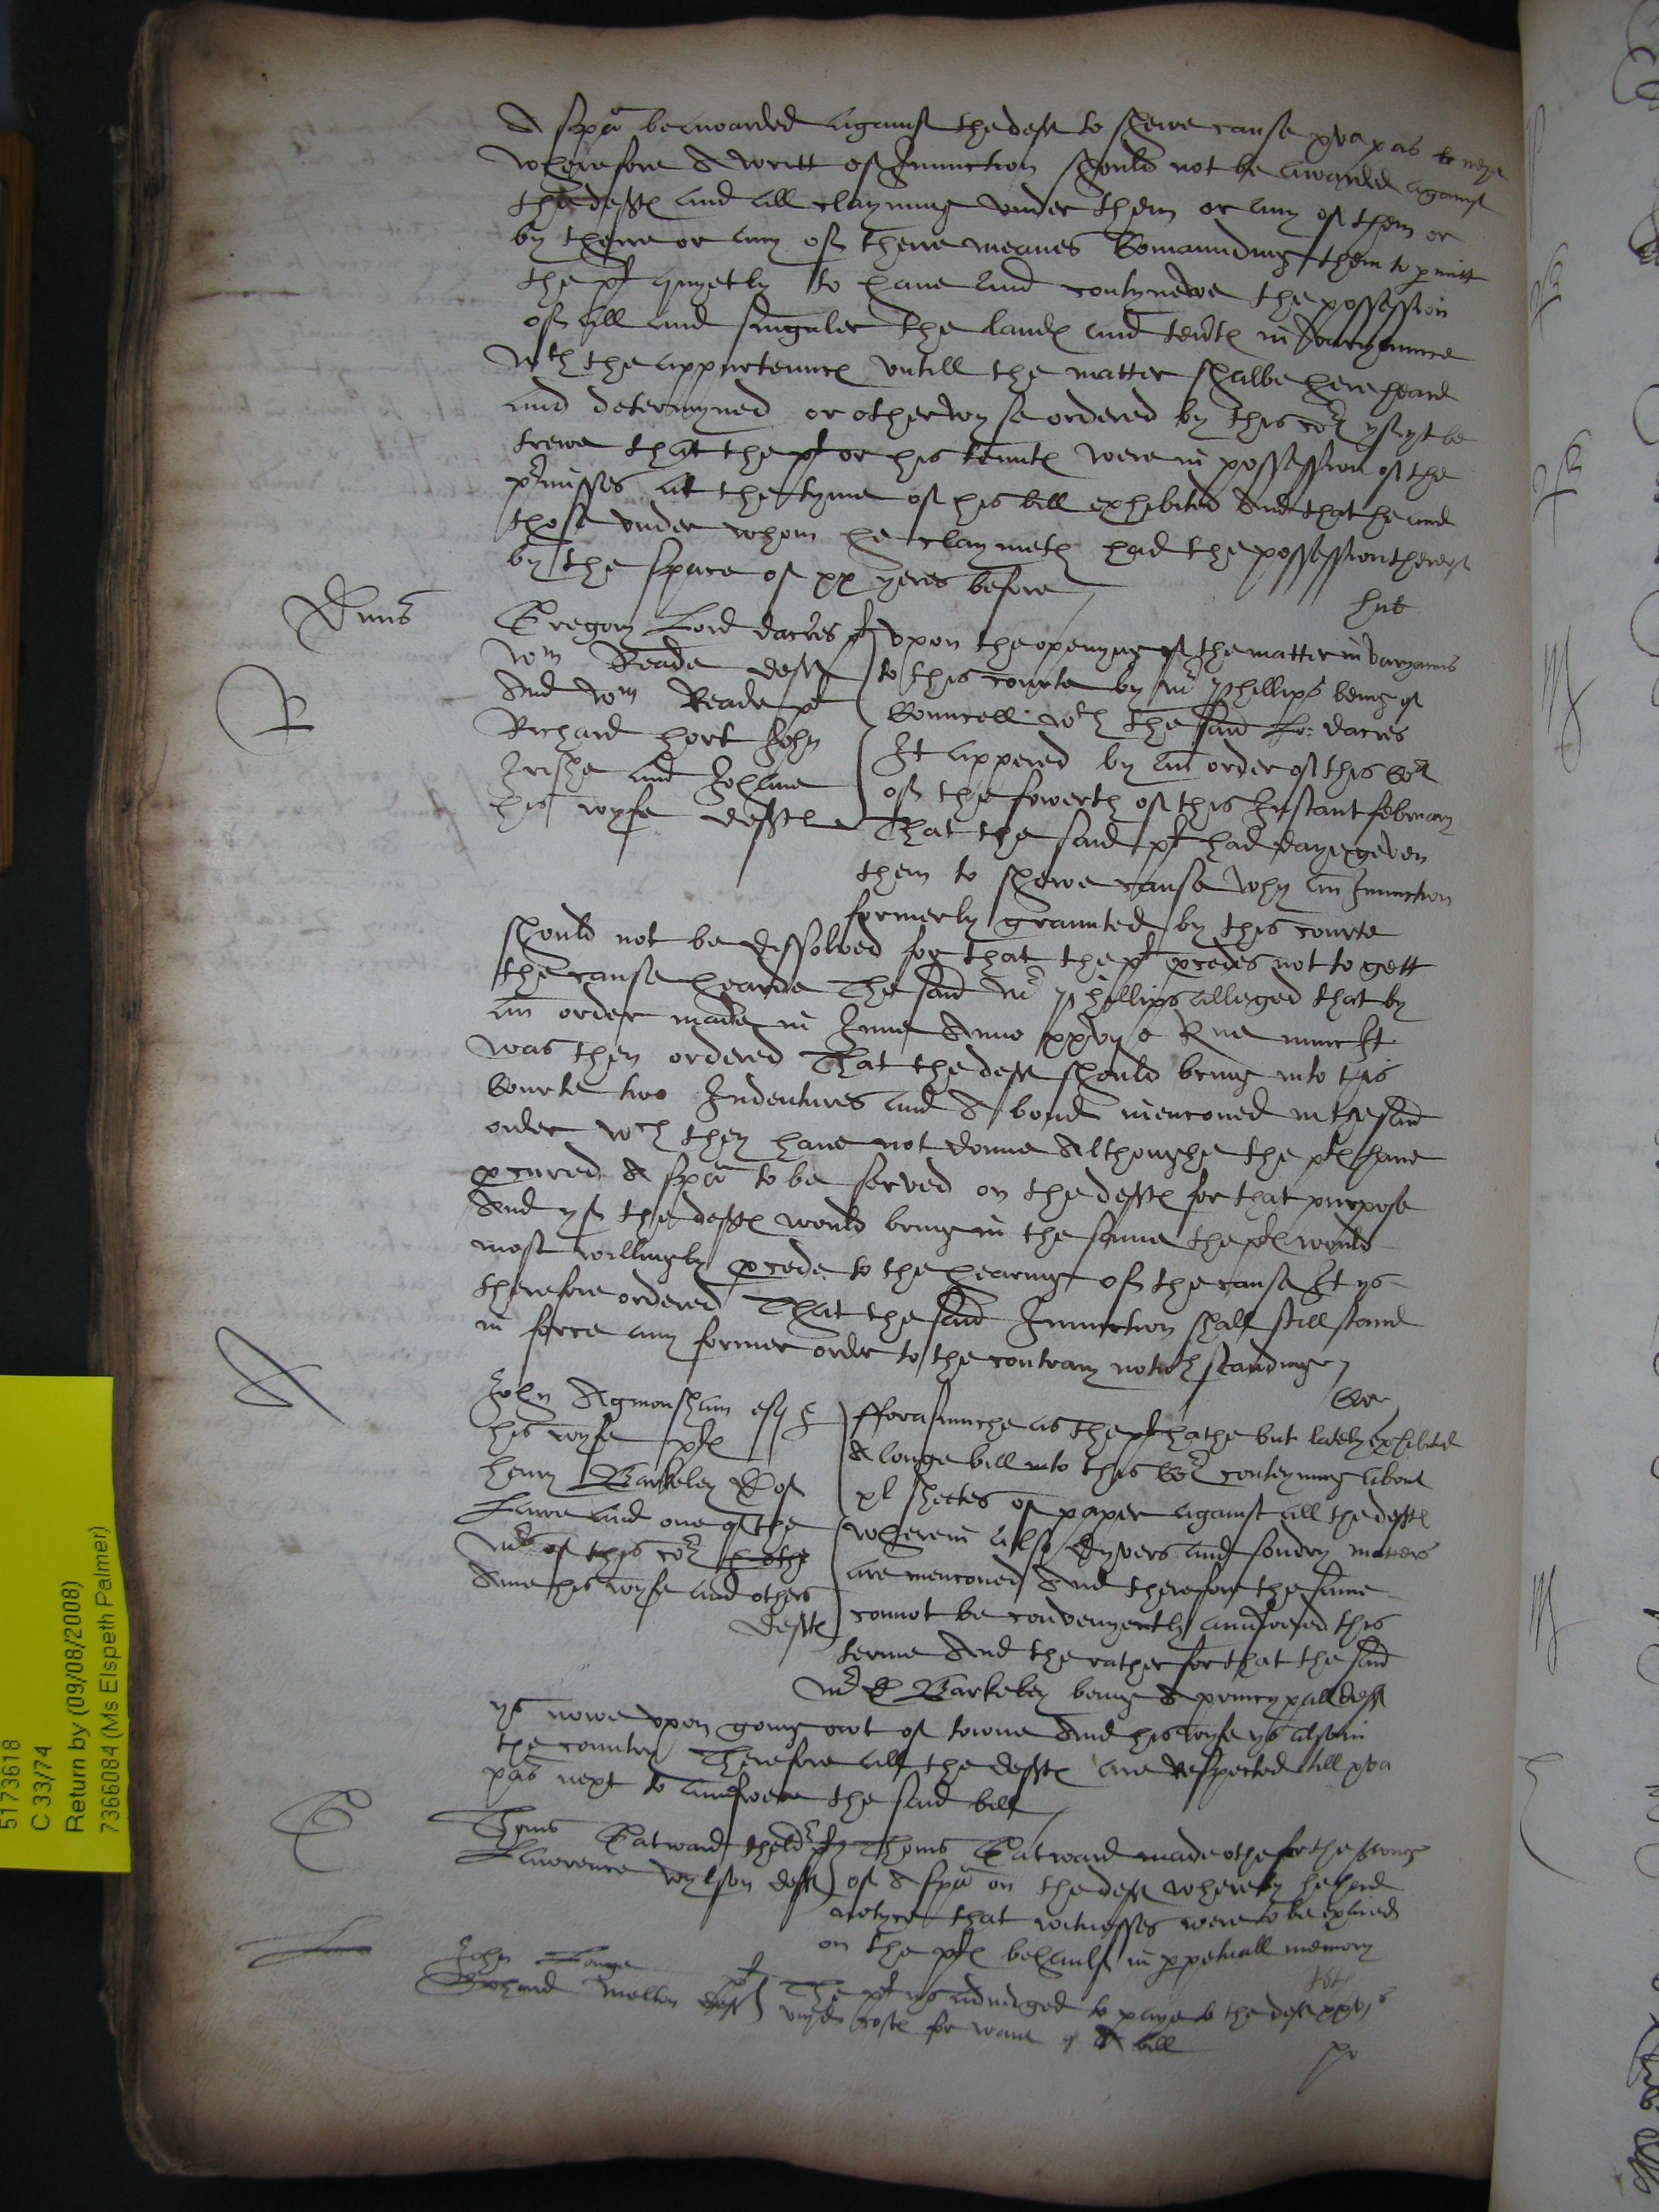 A spā be awarded against the deft to shewe cause xva pas
wherefore A writt of Iniunction should not be awarded against
the deftes and all clayming vnder them or any of them or
by there or any of there meanes Comaunding them to pmitt
the plt quyetly to haue and contynewe the possession
of all and singuler the landes and tentes in varyaunce
wth the appurtenuces vntill the matter shalbe here heard
and determyned or otherwyse ordered by this cort yf yt be
trewe that the plt or his tenntes were in possession of the
pmisses at the tyme of his bill exhibited And that he and
those vnder whom he claymeth had the possession thereof
by the space of xx yeres before
Gregory Lord dacres plt
Wm Reade deft
And Wm Reade plt
Richard hort John
and Johane
his wyfe deftes
vpon the openyng of the matter in varyannce
to this courte by mr Phillipps being of
Councell wth the said Lo: dacres
It appered by an order of this Cort
of the fowerth of this Instant february
That the said plt had daye geven
them to shewe cause why an Iniunction
formerly graunted by this courte
should not be dissolved for that the plt pcedes not to gett
the cause hearde The said mr Phillips alleged that by
an order made in June Anno Rne nunc It
was then ordered That the deft should bring into this
Courte two Indentures and A bond menconed in the said
order wch they haue not donne Althoughe the ptes haue
pcured A spā to be served on the deftes for that purpose
And yf the deftes would bring in the same the ptes would
most willingly pcede to the hearing of the cause It ys
therefore ordered That the said Iniunction shall still stand
in force any former order to the contrary notwthstanding
John Agmondsham esq &
his wyfe ptes
henry Barkeley D of
Lawe and one of the
mrs of this cort
Anne his wyfe and others
deftes
fforasmuche as the plt hathe but lately exhibited
A longe bill into this Cort conteyning about
xl sheetes of paper against all the deftes
wherein also dyvers and sondry matters
are menconed And therefore the same
connot be convenyently aunswered this
terme And the rather for that the said
mr D Barkeley being A pryncypall deft
ys nowe vpon going owt of towne And his wyfe ys also in
the country Therefore all the deftes are Respected till xva
pas next to aunswere the said bill
Thoms Eatward plt
Lawrence Wylson deft
Thoms Eatward made othe for the serving
of A spā on the deft whereby he had
notyce that witnesses were to be exined
on the ptes behaulf in ppetuall memory
John Longe plt
Richard Mellen deft
The plt ys adiudged to paye to the deft
costes for want of A bill
5173618
C 33/74
Return by (09/08/2008)
7366084 (Ms Elspeth Palmer)